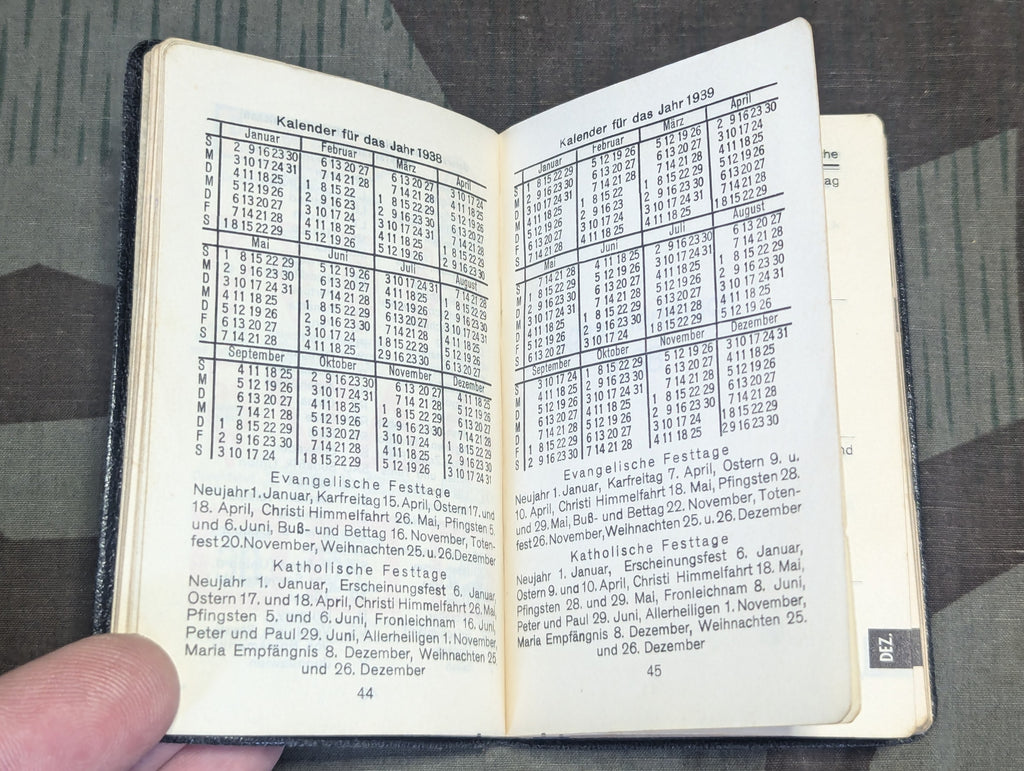 Kalender für das Jahr 1938
Januar Februar März April
S 2 9 16 23 30 6 13 20 27 6 13 20 27 3 10 17 24
M 3 10 17 24 31 7 14 21 28 7 14 21 28 4 11 18 25
D 4 11 18 25 1 8 15 22 1 8 15 22 29 5 12 19 26
M 5 12 19 26 2 9 16 23 2 9 16 23 30 6 13 20 27
D 6 13 20 27 3 10 17 24 3 10 17 24 31 7 14 21 28
F 7 14 21 28 4 11 18 25 4 11 18 25 1 8 15 22 29
S 1 8 15 22 29 5 12 19 26 5 12 19 26 2 9 16 23 30
Mai Juni Juli August
S 1 8 15 22 29 5 12 19 26 3 10 17 24 31 7 14 21 28
M 2 9 16 23 30 6 13 20 27 4 11 18 25 1 8 15 22 29
D 3 10 17 24 31 7 14 21 28 5 12 19 26 2 9 16 23 30
M 4 11 18 25 1 8 15 22 29 6 13 20 27 3 10 17 24 31
D 5 12 19 26 2 9 16 23 30 7 14 21 28 4 11 18 25
F 6 13 20 27 3 10 17 24 1 8 15 22 29 5 12 19 26
S 7 14 21 28 4 11 18 25 2 9 16 23 30 6 13 20 27
September Oktober November Dezember
S 4 11 18 25 2 9 16 23 30 6 13 20 27 4 11 18 25
M 5 12 19 26 3 10 17 24 31 7 14 21 28 5 12 19 26
D 6 13 20 27 4 11 18 25 1 8 15 22 29 6 13 20 27
M 7 14 21 28 5 12 19 26 2 9 16 23 30 7 14 21 28
D 1 8 15 22 29 6 13 20 27 3 10 17 24 1 8 15 22 29
F 2 9 16 23 30 7 14 21 28 4 11 18 25 2 9 16 23 30
S 3 10 17 24 1 8 15 22 29 5 12 19 26 3 10 17 24 31
Evangelische Festtage
Neujahr 1. Januar, Karfreitag 15. April, Ostern 17. und
18. April, Christi Himmelfahrt 26. Mai, Pfingsten 5.
und 6. Juni, Buß- und Bettag 16. November, Toten-
fest 20. November, Weihnachten 25. u. 26. Dezember
Katholische Festtage
Neujahr 1. Januar, Erscheinungsfest 6. Januar
Ostern 17. und 18. April, Christi Himmelfahrt 26. Mai,
Pfingsten 5. und 6. Juni, Fronleichnam 16. Juni,
Peter und Paul 29. Juni, Allerheiligen 1. November,
Maria Empfängnis 8. Dezember, Weihnachten 25
und 26. Dezember
44
Kalender für das Jahr 1939
Januar Februar März April
S 1 8 15 22 29 5 12 19 26 5 12 19 26 2 9 16 23 30
M 2 9 16 23 30 6 13 20 27 6 13 20 27 3 10 17 24
D 3 10 17 24 31 7 14 21 28 7 14 21 28 4 11 18 25
M 4 11 18 25 1 8 15 22 1 8 15 22 29 5 12 19 26
D 5 12 19 26 2 9 16 23 2 9 16 23 30 6 13 20 27
F 6 13 20 27 3 10 17 24 3 10 17 24 31 7 14 21 28
S 7 14 21 28 4 11 18 25 4 11 18 25 1 8 15 22 29
Mai Juni Juli August
S 7 14 21 28 4 11 18 25 2 9 16 23 30 6 13 20 27
M 1 8 15 22 29 5 12 19 26 3 10 17 24 31 7 14 21 28
D 2 9 16 23 30 6 13 20 27 4 11 18 25 1 8 15 22 29
M 3 10 17 24 31 7 14 21 28 5 12 19 26 2 9 16 23 30
D 4 11 18 25 1 8 15 22 29 6 13 20 27 3 10 17 24 31
F 5 12 19 26 2 9 16 23 30 7 14 21 28 4 11 18 25
S 6 13 20 27 3 10 17 24 1 8 15 22 29 5 12 19 26
September Oktober November Dezember
S 3 10 17 24 1 8 15 22 29 5 12 19 26 3 10 17 24 31
M 4 11 18 25 2 9 16 23 30 6 13 20 27 4 11 18 25
D 5 12 19 26 3 10 17 24 31 7 14 21 28 5 12 19 26
M 6 13 20 27 4 11 18 25 1 8 15 22 29 6 13 20 27
D 7 14 21 28 5 12 19 26 2 9 16 23 30 7 14 21 28
F 1 8 15 22 29 6 13 20 27 3 10 17 24 1 8 15 22 29
S 2 9 16 23 30 7 14 21 28 4 11 18 25 2 9 16 23 30
Evangelische Festtage
Neujahr 1. Januar, Karfreitag 7. April, Ostern 9. u.
10. April, Christi Himmelfahrt 18. Mai, Pfingsten 28.
und 29. Mai, Buß- und Bettag 22. November, Toten-
fest 26. November, Weihnachten 25. u. 26. Dezember
Katholische Festtage
Neujahr 1. Januar, Erscheinungsfest 6. Januar,
Ostern 9. und 10. April, Christi Himmelfahrt 18. Mai,
Pfingsten 28. und 29. Mai, Fronleichnam 8. Juni,
Peter und Paul 29. Juni, Allerheiligen 1. November,
Maria Empfängnis 8. Dezember, Weihnachten 25.
und 26. Dezember
45
he
ag
nd
DEZ.